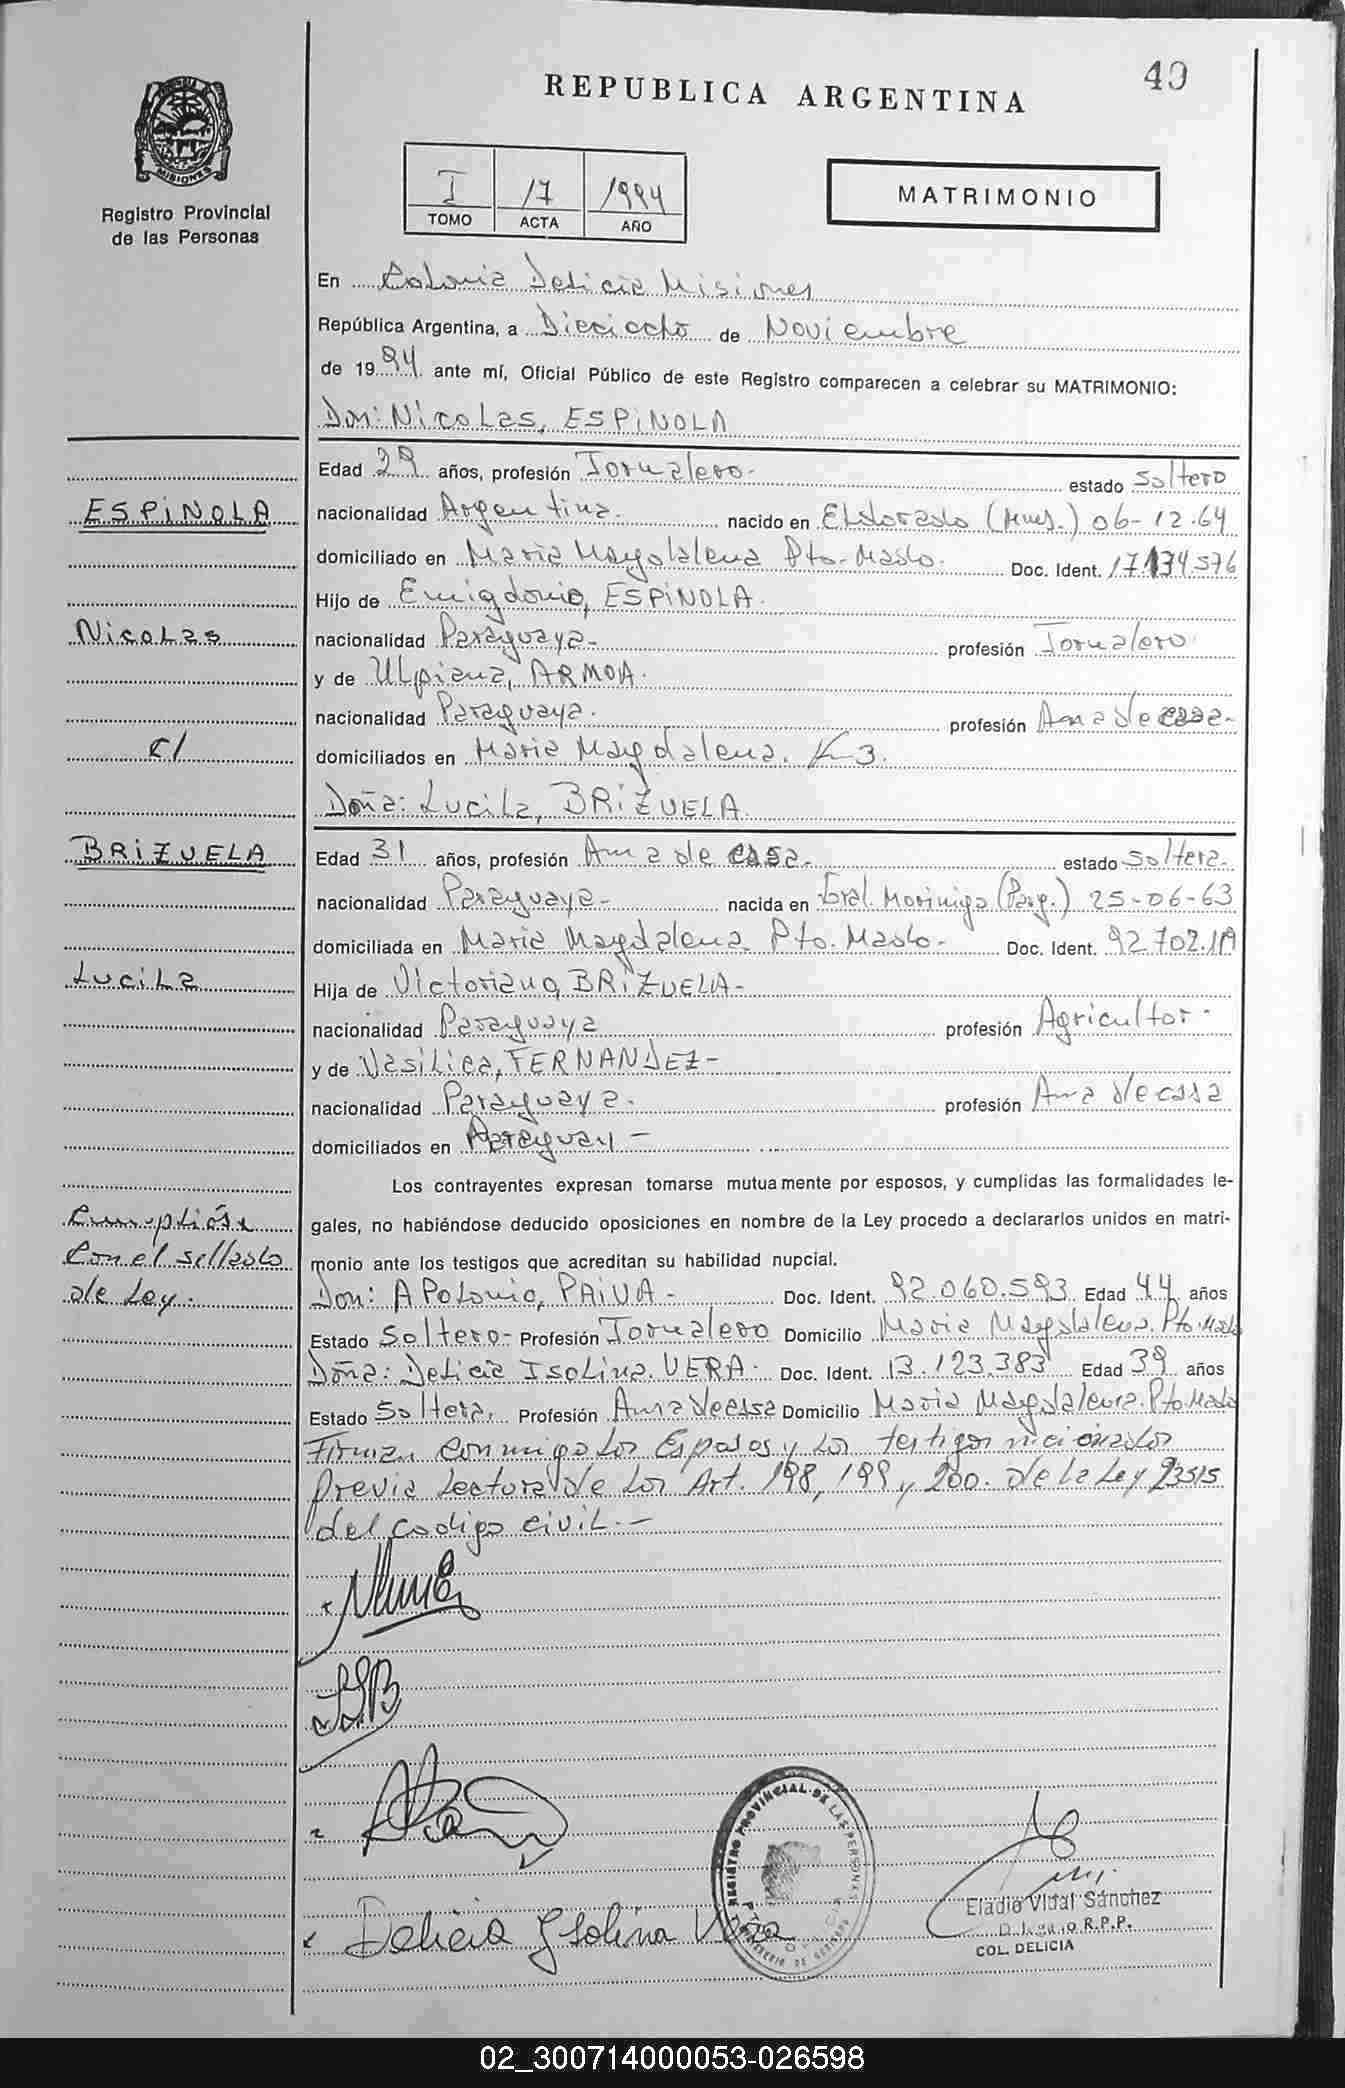 49
REPUBLICA ARGENTINA
MISIONES
Registro Provincial
de las Personas
I 17 1994
TOMO ACTA AÑO
MATRIMONIO
En Colonia Delicia Misiones
República Argentina, a Dieciocho de Noviembre
de 1994 ante mí, Oficial Público de este Registro comparecen a celebrar su MATRIMONIO:
Don: Nicolas, ESPINOLA
Edad 29 años, profesión Jornalero- estado Soltero
ESPINOLA
nacionalidad Argentina. nacido en Eldorado (Mnes.) 06-12-64
domiciliado en Maria Magdalena Pto-Mado. Doc. Ident. 17.134576
Hijo de Emigdonio, ESPINOLA.
Nicolas
nacionalidad Paraguaya- profesión Jornalero
y de Ulpiana, ARMOA.
nacionalidad Paraguaya. profesión Ama de casa-
c/
domiciliados en Maria Magdalena. K-3.
Doña: Lucila, BRIZUELA.
BRIZUELA
Edad 31 años, profesión Ama de casa- estado Soltera-
nacionalidad Paraguaya- nacida en Gral. Morinigo (Parg.) 25-06-63
domiciliada en Maria Magdalena Pto. Mado- Doc. Ident. 92.702.
Lucila
Hija de Victoriano, BRIZUELA-
nacionalidad Paraguaya profesión Agricultor-
y de Vasilica, FERNANDEZ-
nacionalidad Paraguaya. profesión Ama de casa
domiciliados en Paraguay-
Los contrayentes expresan tomarse mutuamente por esposos, y cumplidas las formalidades le-
gales, no habiéndose deducido oposiciones en nombre de la Ley procedo a declararlos unidos en matri-
monio ante los testigos que acreditan su habilidad nupcial.
con el sellado
de Ley.
Don: APolonio, PAIVA- Doc. Ident. 92.060.593 Edad 44 años
Estado Soltero- Profesión Jornalero Domicilio Maria Magdalena. Pto. Mado
Doña: Delicia Isolina. VERA. Doc. Ident. 13.123.383 Edad 39 años
Estado Soltera. Profesión Ama de casa Domicilio Maria Magdalena. Pto. Mado
Firman conmigo los Esposos y los testigos
previa lectura de los Art. 198, 199 y 200. de la Ley 23515
del codigo civil.-
Delicia Ysolina Vera
REGISTRO PROVINCIAL DE LAS PERSONAS
Eladio Vidal Sánchez
R.P.P.
COL. DELICIA
02_300714000053-026598